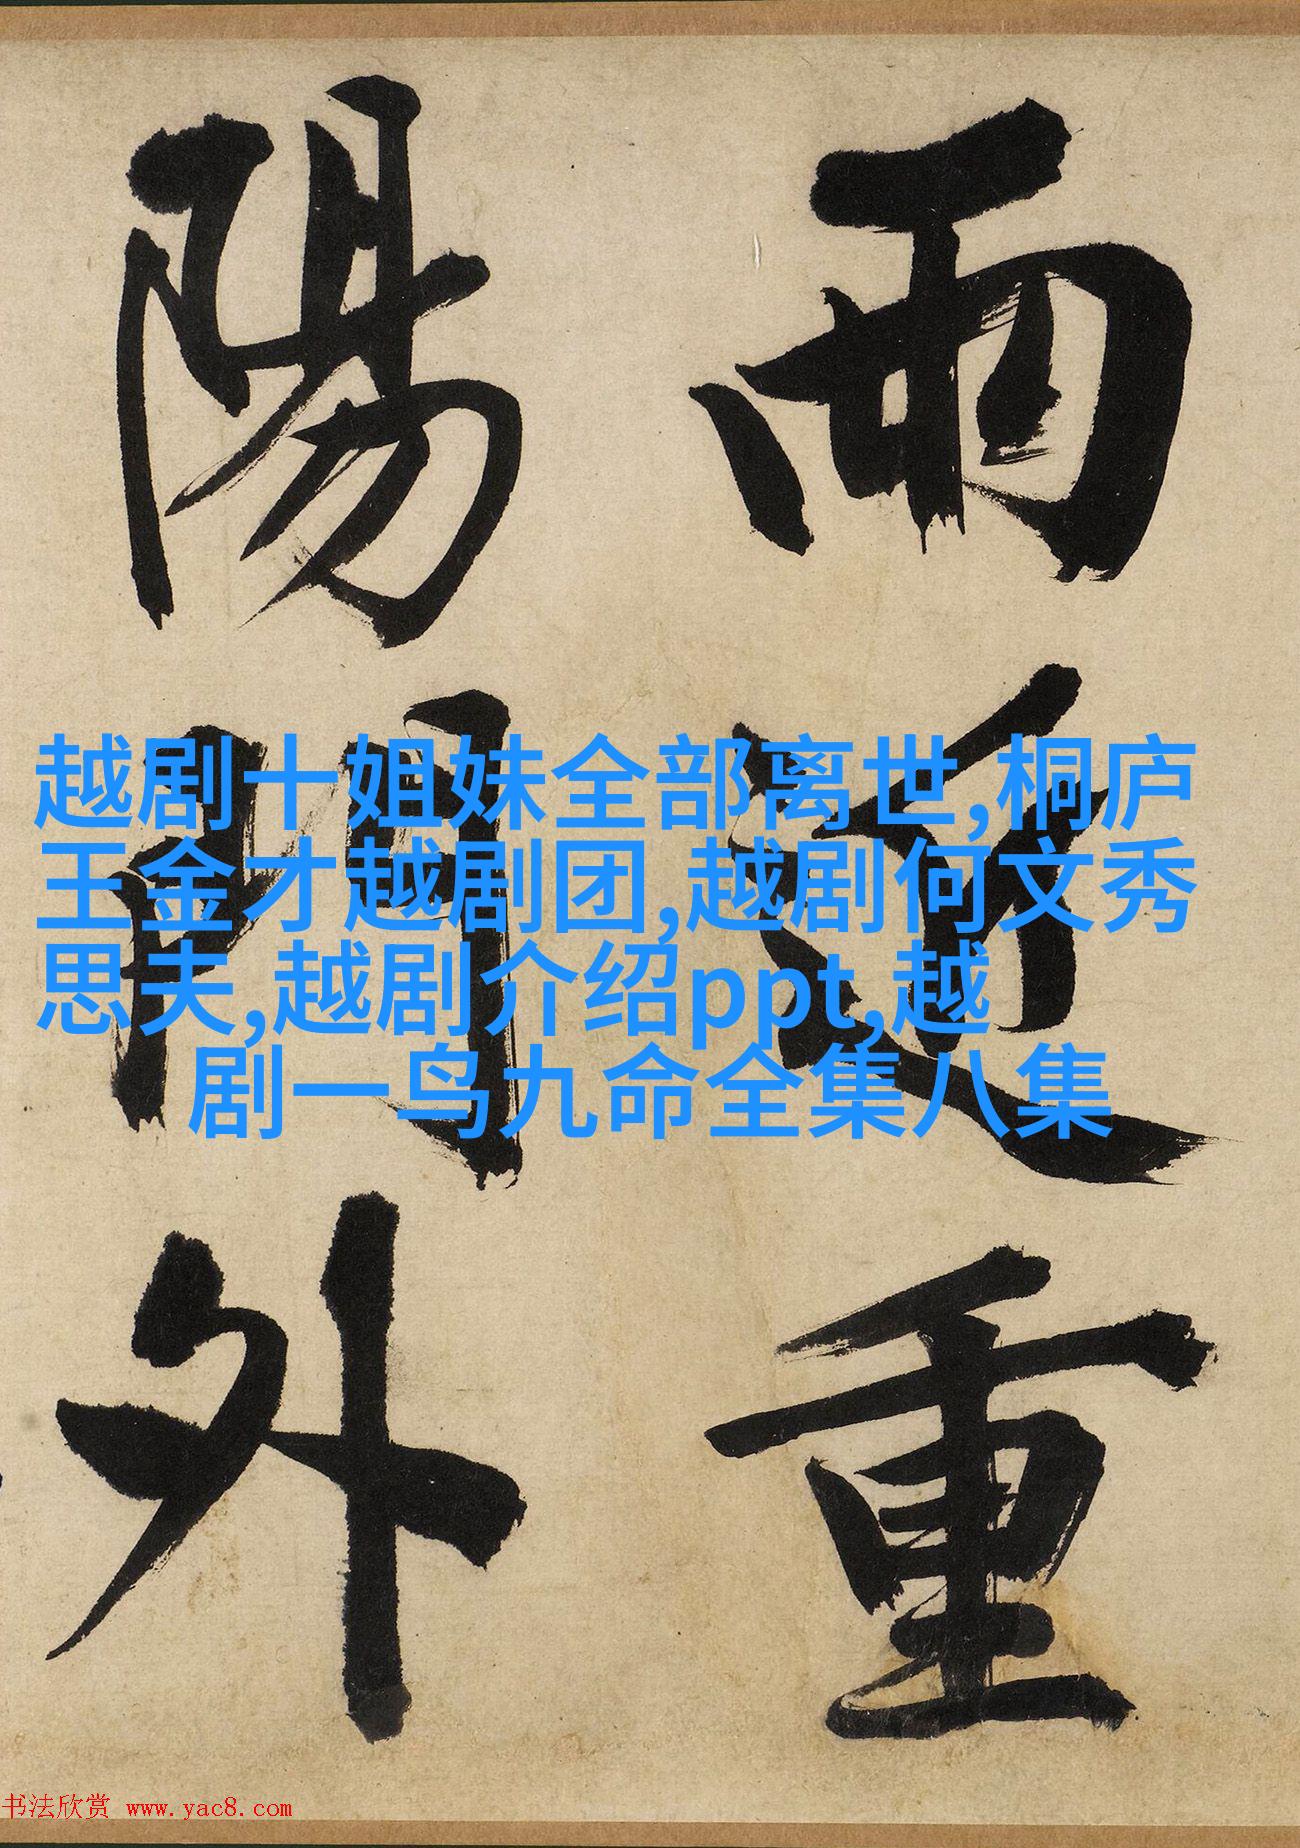 雨近重
陽門外
越剧十姐妹全部离世,桐庐
王金才越剧团,越剧何文秀
思夫,越剧介绍ppt,越
剧一鸟九命全集八集
书法欣赏 www.yac8.com